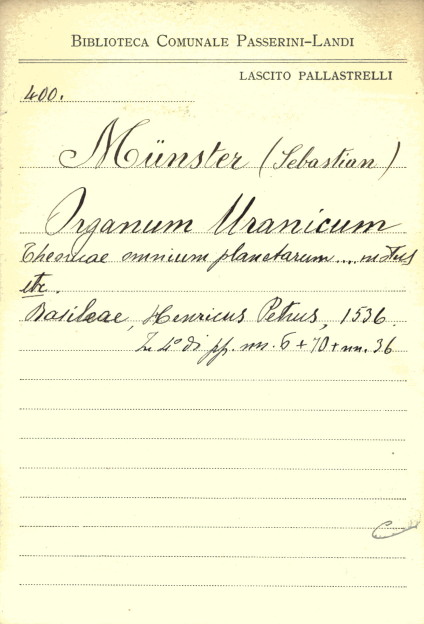 BIBLIOTECA COMUNALE PASSERINI-LANDI
LASCITO PALLASTRELLI
400.
Münster (Sebastian)
Organum Uranicum
Theoricae omnium planetarum.... motus
etc.
Basileae, Henricus Petrus, 1536.
In 4° di pp. nn. 6 + 70 + nn. 36